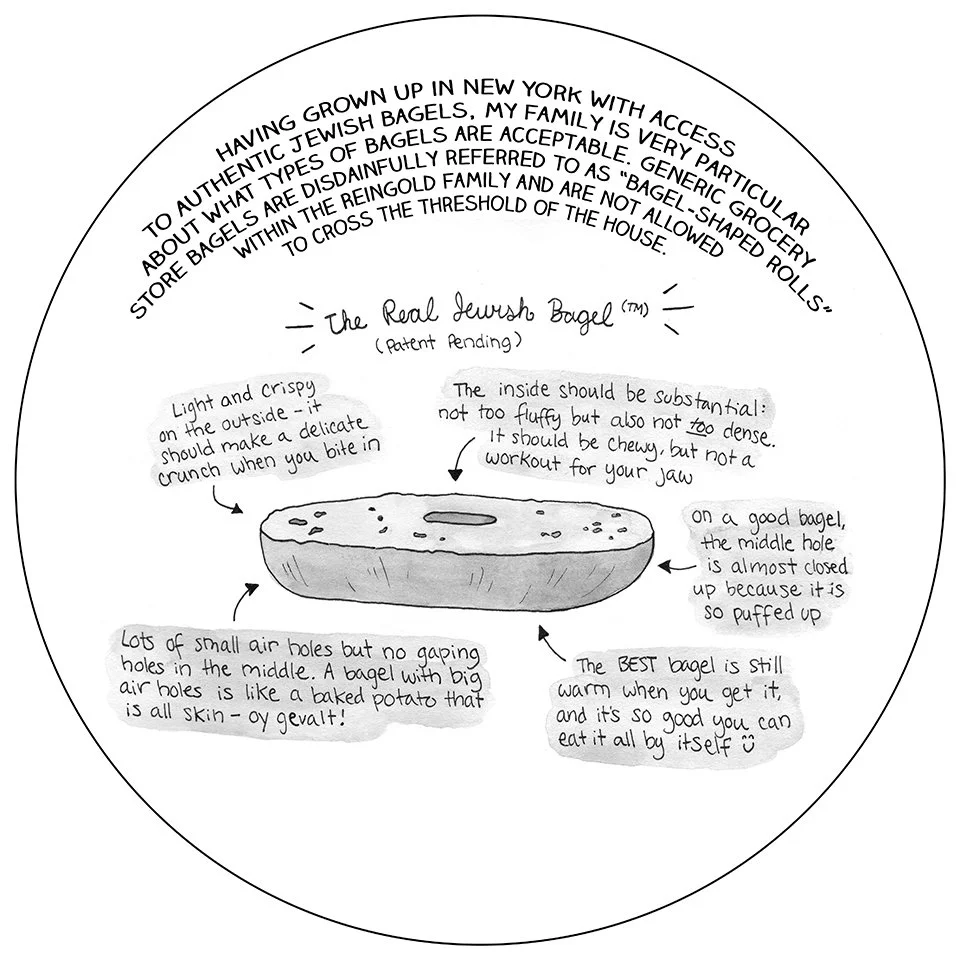 HAVING GROWN UP IN NEW YORK WITH ACCESS
TO AUTHENTIC JEWISH BAGELS, MY FAMILY IS VERY PARTICULAR
ABOUT WHAT TYPES OF BAGELS ARE ACCEPTABLE. GENERIC GROCERY
STORE BAGELS ARE DISDAINFULLY REFERRED TO AS "BAGEL-SHAPED ROLLS"
WITHIN THE REINGOLD FAMILY AND ARE NOT ALLOWED
TO CROSS THE THRESHOLD OF THE HOUSE.
The Real Jewish Bagel (TM)
(Patent Pending)
Light and Crispy
on the outside – it
should make a delicate
crunch when you bite in
The inside should be substantial:
not too fluffy but also not too dense.
It should be chewy, but not a
workout for your jaw
on a good bagel,
the middle hole
is almost closed
up because it is
so puffed up
Lots of small air holes but no gaping
holes in the middle. A bagel with big
air holes is like a baked potato that
is all skin – oy gevalt!
The BEST bagel is still
warm when you get it,
and it's so good you can
eat it all by itself